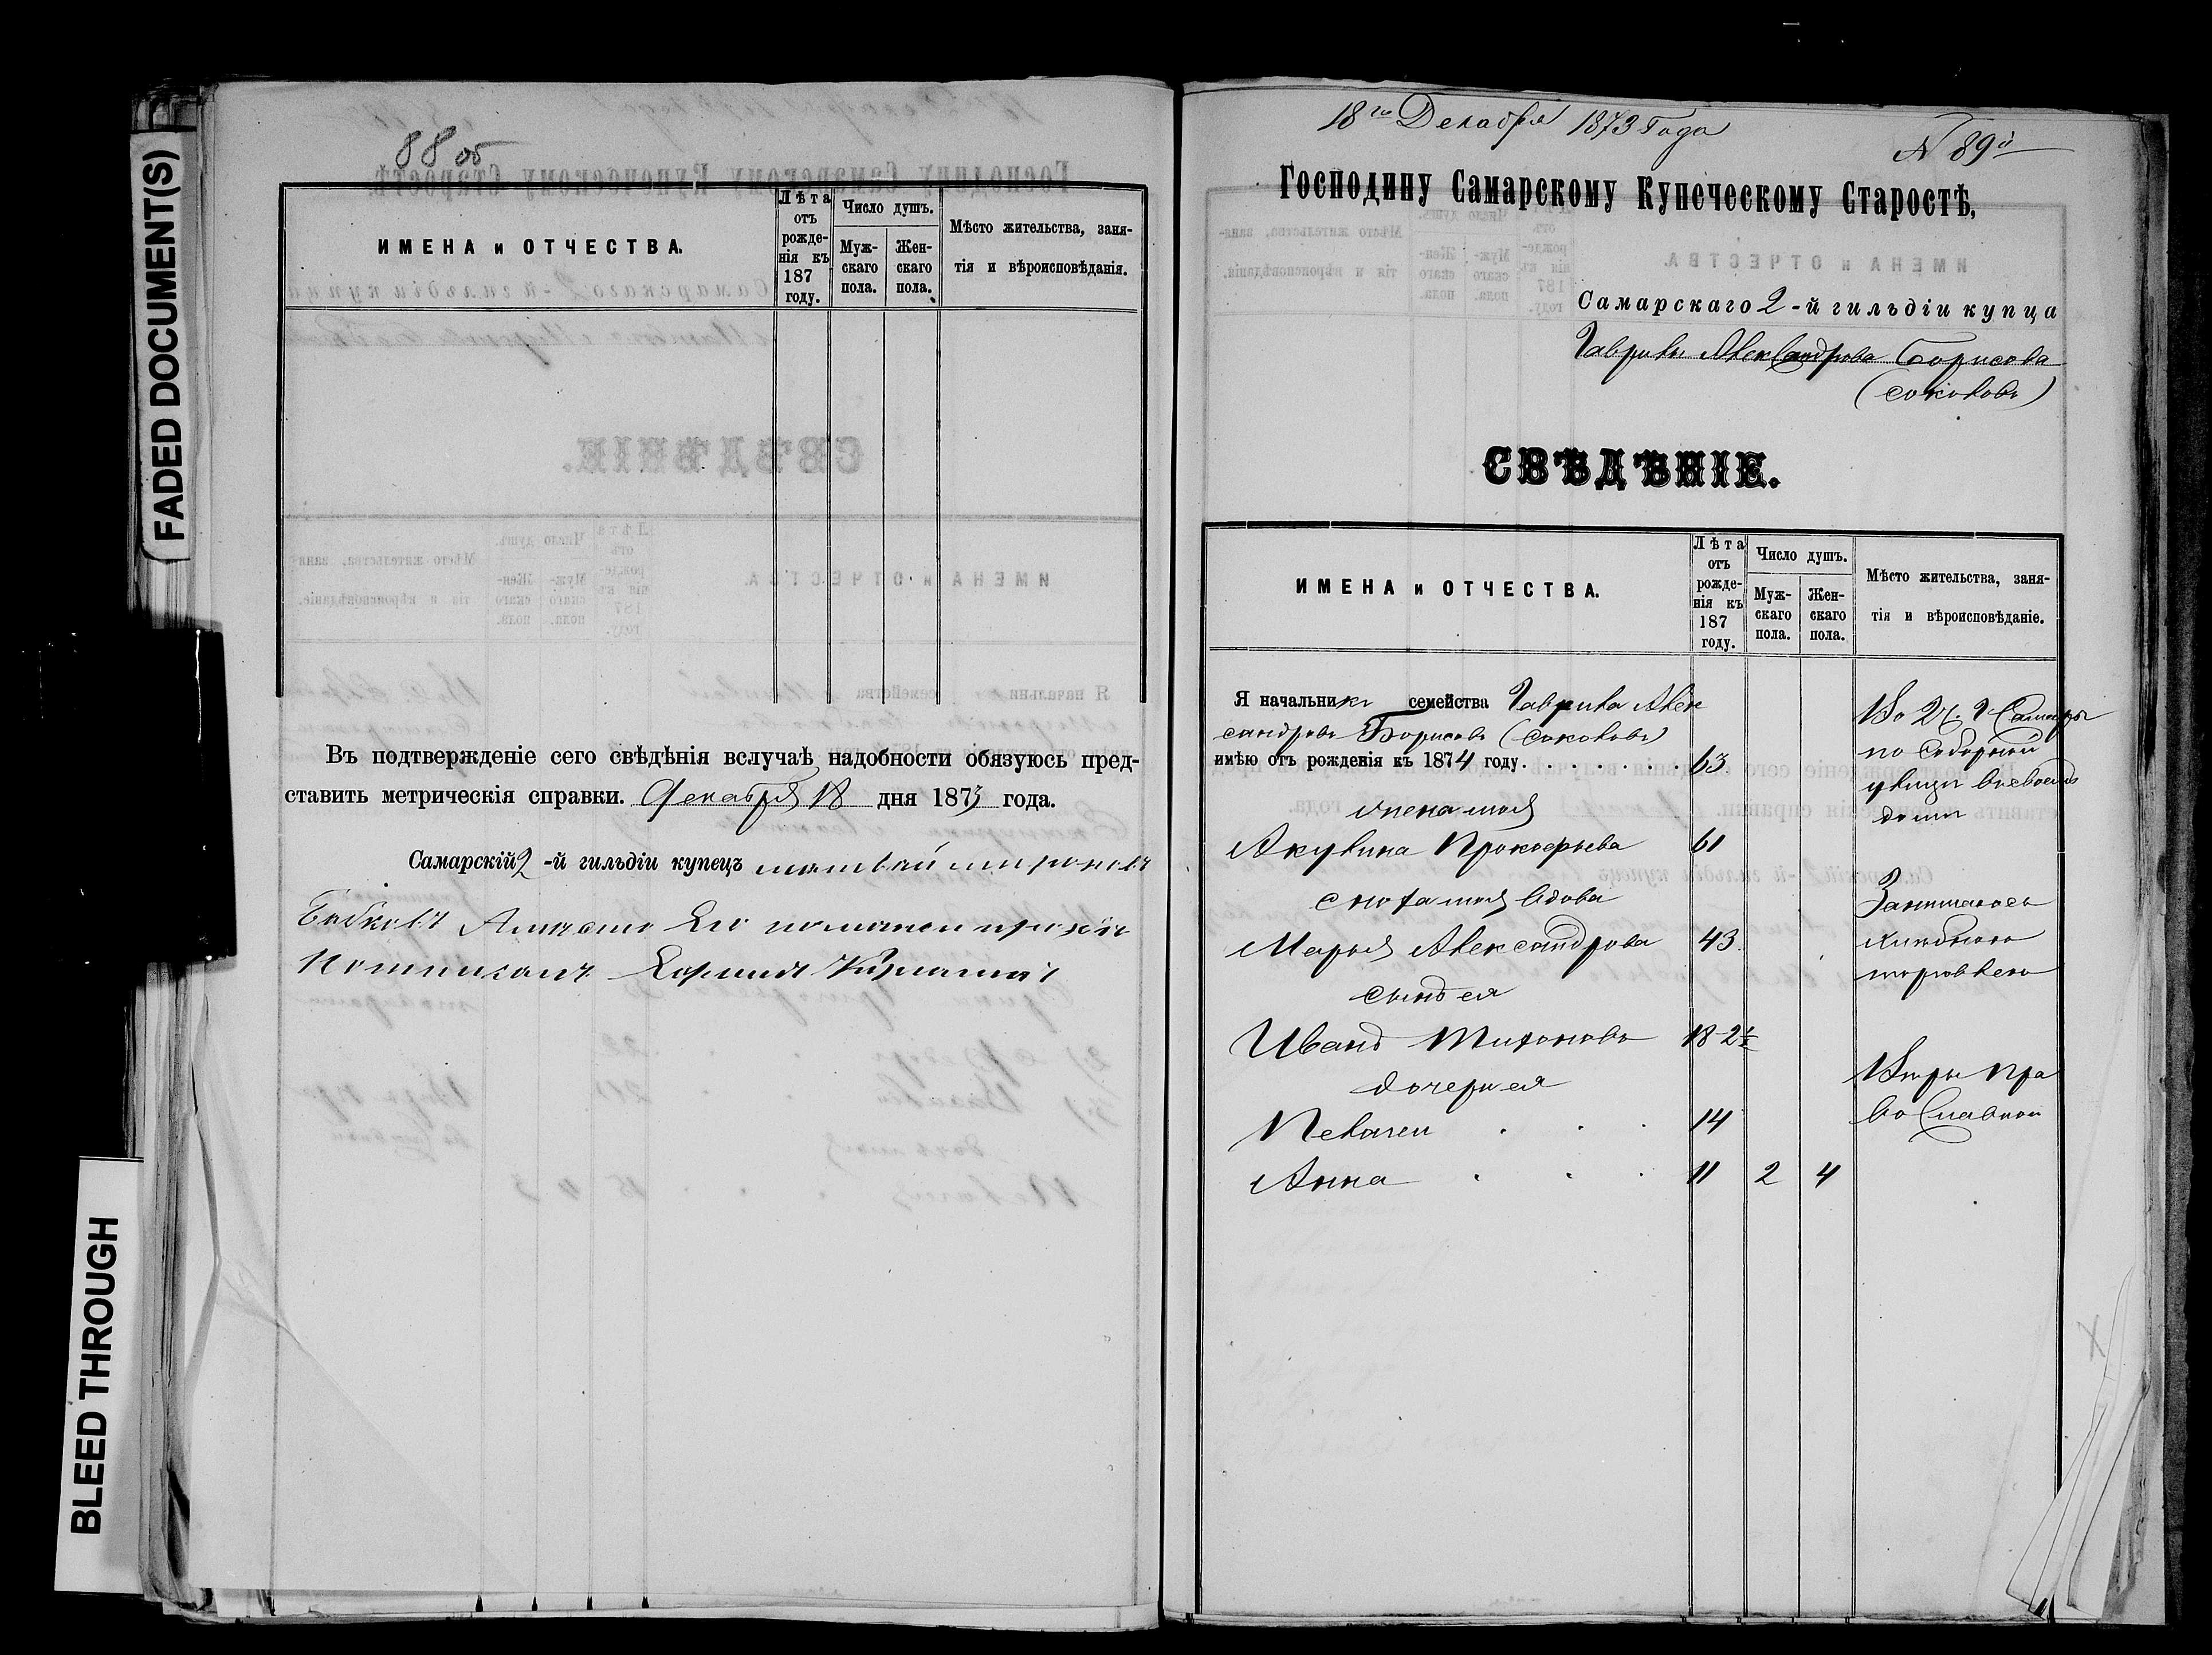 FADED DOCUMENT(S)
BLEED THROUGH
88 об
ИМЕНА и ОТЧЕСТВА.
Лѣта отъ рожденія къ 187 году.
Число душъ.
Мужскаго пола.
Женскаго пола.
Мѣсто жительства, занятія и вѣроисповѣданія.
Въ подтвержденіе сего свѣдѣнія вслучаѣ надобности обязуюсь пред-
ставить метрическія справки. Декабря 18 дня 1873 года.
Самарскій 2-й гильдіи купецъ матвей мироновъ
Бабковъ Его
18го Декабря 1873 Года
N 89й
Господину Самарскому Купеческому Старостѣ,
Самарскаго 2-й гильдіи купца
Гаврилы Александрова Борисова
(Соколовъ)
СВѢДѢНІЕ.
ИМЕНА и ОТЧЕСТВА.
Лѣта отъ рожденія къ 187 году.
Число душъ.
Мужскаго пола.
Женскаго пола.
Мѣсто жительства, занятія и вѣроисповѣданіе.
Я начальникъ семейства Гаврила Алек
сандровъ Борисовъ (Соколовъ)
имѣю отъ рожденія къ 1874 году. . . . . . . 63
жена моя
Акулина Прокофьева 61
сноха моя вдова
Марья Александрова 43.
сынъ ея
Иванъ Тихоновъ 18-2½
дочери ея
Пелагеи . . . 14
Анна . . . 11 2 4
Во 2 ч. г Самары
по Соборной
улицѣ
домѣ
Занимаюсь
хлѣбною
торговлею
Вѣры Пра
вославной